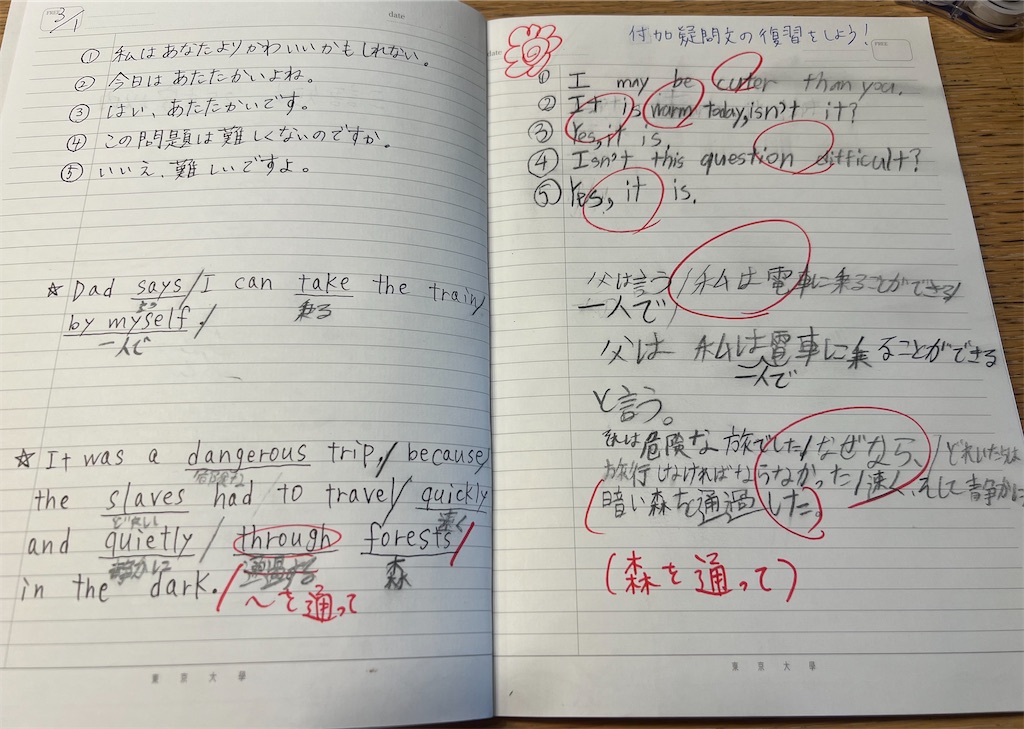 FREE
3/1
date
① 私はあなたよりかわいいかもしれない。
② 今日はあたたかいよね。
③ はい、あたたかいです。
④ この問題は難しくないのですか。
⑤ いいえ、難しいですよ。
☆ Dad says/I can take the train/
言う 乗る
by myself./
一人で
☆ It was a dangerous trip,/because/
危険な
the slaves had to travel/quickly
どれい 速く
and quietly/through forests/
静かに 通過する 森
in the dark./
〜を通って
東京大學
date
付加疑問文の復習をしよう!
FREE
① I may be cuter than you.
② It is warm today, isn't it?
③ Yes, it is.
④ Isn't this question difficult?
⑤ Yes, it is.
父は言う/私は電車に乗ることができる/
一人で/
父は 私は電車に乗ることができる
一人で
と言う。
私は危険な旅でした/なぜなら、/どれいたちは
旅行しなければならなかった/速く、そして静かに
(暗い森を通過した。)
(森を通って)
東京大學